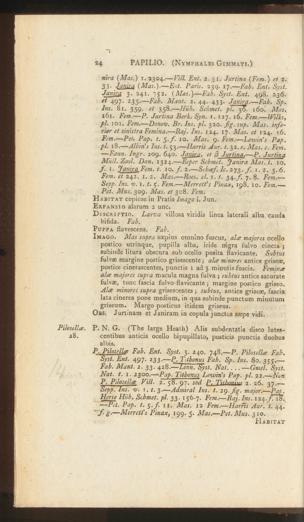 24 PAPILIO. (Nymphales Gemmati.)
nira (Mas.) 1. 2304.—Vill. Ent. 2. 51. Jurtina (Fem.) et 2.
33. Janira (Mas.).—Ent. Paris. 239. 17.—Fab. Ent. Syst.
Janira 3. 241. 752. (Mas.)—Fab. Syst. Ent. 498. 236.
et 497. 235.—Fab. Mant. 2. 44. 433. Janira.—Fab. Sp.
Ins. 81. 359. et 358.—Hüb. Schmet. pl. 36. 160. Mas.
161. Fem.—P. Jurtina Berk. Syn. 1. 127. 16. Fem.—Wilks,
pl. 101. Fem.—Donov. Br. Ins. pl. 320. fig. sup. Mas. infe-
rior et sinistra Femina.—Raj. Ins. 124. 17. Mas. et 124. 16.
Fem.—Pet. Pap. t. 5. f. 20. Mas. 9. Fem.—Lewin's Pap.
pl. 18.—Albin's Ins. t. 53.—Harris Aur. t. 32. c. Mas. i. Fem.
—Faun. Ingr. 209. 640. Janira, et ß Jurtina.—P. Jurtina
Müll. Zool. Dan. 1324.—Esper Schmet. Janira Mas. t. 10.
f. 1. Janira Fem. t. 10. f. 2.—Schæf. Ic. 273. f. 1. 2. 5. 6.
Fem. et 242. f. 1. 2. Mas.—Roes. cl. 2. t. 34. f. 7. 8. Fem.—
Sepp. Ins. w. 1. t. 5. Fem.—Merrett's Pinax, 198. 10. Fem.—
Pet. Mus. 309. Mas. et 308. Fem.
Habitat copiose in Pratis imago l. Jun.
Expansio alarum 2 unc.
Descriptio. Larva villosa viridis linea laterali alba cauda
bifida. Fab.
Puppa flavescens. Fab.
Imago. Mas supra saepius omnino fuscus, alæ majores ocello
postico utrinque, pupilla alba, iride nigra fulvo cincta;
subinde litura obscura sub ocello postea flavicante. Subtus
fulvæ margine postico grisescente; alæ minores antice griseæ,
postice cinerascentes, punctis 1 ad 3 minutis fuscis. Femineæ
alæ majores supra macula magna fulva; subtus antice saturate
fulvæ, tunc fascia fulvo-flavicante; margine postico griseo.
Alæ minores supra griseoscentes; subtus, antice griseæ, fascia
lata cinerea pone medium, in qua subinde punctum minutum
griseum. Margo posticus itidem griseus.
Obs. Jurtinam et Janiram in copula junctas sæpe vidi.
Pilosellæ. P. N. G. (The large Heath) Alis subdentatis disco lutes-
28. centibus anticis ocello bipupillato, posticis punctis duobus
albis.
P. Pilosellæ Fab. Ent. Syst. 3. 240. 748.—P. Pilosellæ Fab.
Syst. Ent. 497. 233.—P. Tithonus Fab. Sp. Ins. 80. 355.—
Fab. Mant. 2. 33. 428.—Linn. Syst. Nat. . . . —Gmel. Syst.
Nat. 1. 1. 2300.—Pap. Tithonus Lewin's Pap. pl. 22.—Non
P. Pilosellæ Vill. 2. 58. 97. sed P. Tithonius 2. 26. 37.—
Sepp. Ins. w. 1. t. 3.—Admiral Ins. t. 29. fig. major.—Pap.
Herse Hüb. Schmet. pl. 33. 156-7. Fem.—Raj. Ins. 124. f. 18.
—Pet. Pap. t. 5. f. 11. Mas. 12 Fem.—Harris Aur. t. 44.
f. g.—Merrett's Pinax, 199. 5. Mas.—Pet. Mus. 310.
Habitat